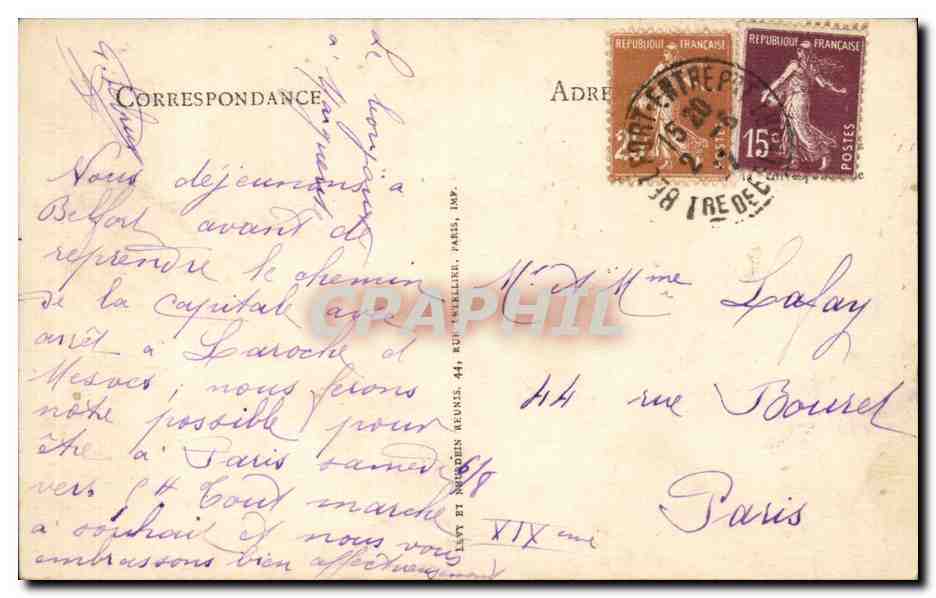 CORRESPONDANCE
Le bonjour
à Marguerite
Nous déjeunons à
Belfort avant de
reprendre le chemin
de la capitale avec
arrêt à Laroche et
Mesves, nous ferons
notre possible pour
être à Paris samedi 6/8
vers 5H Tout marche
à souhait et nous vous
embrassons bien affectueusement
LEVY ET NEURDEIN REUNIS, 44, RUE LETELLIER, PARIS, IMP.
REPUBLIQUE FRANÇAISE
25
POSTES
REPUBLIQUE FRANÇAISE
15c
POSTES
BELFORT-ENTREPÔT
15 20
2 - 8
TRE DE B
Mr & Mme Lafay
44 rue Bouret
Paris
XIX ème
CPAPHIL